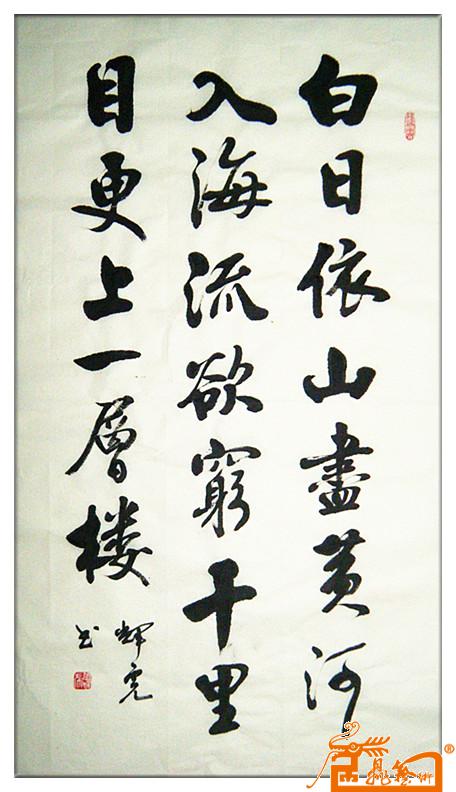 白日依山盡黄河
入海流欲窮千里
目更上一層楼
书
®